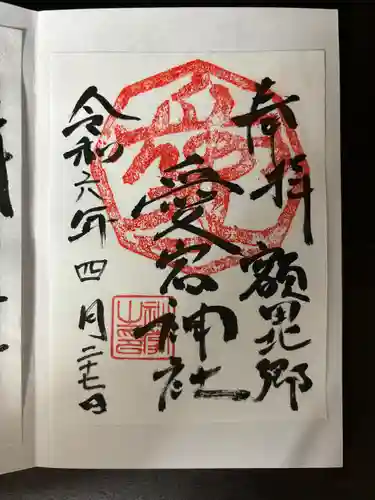 奉拝 額田北郷
愛宕神社
令和六年四月二十七日